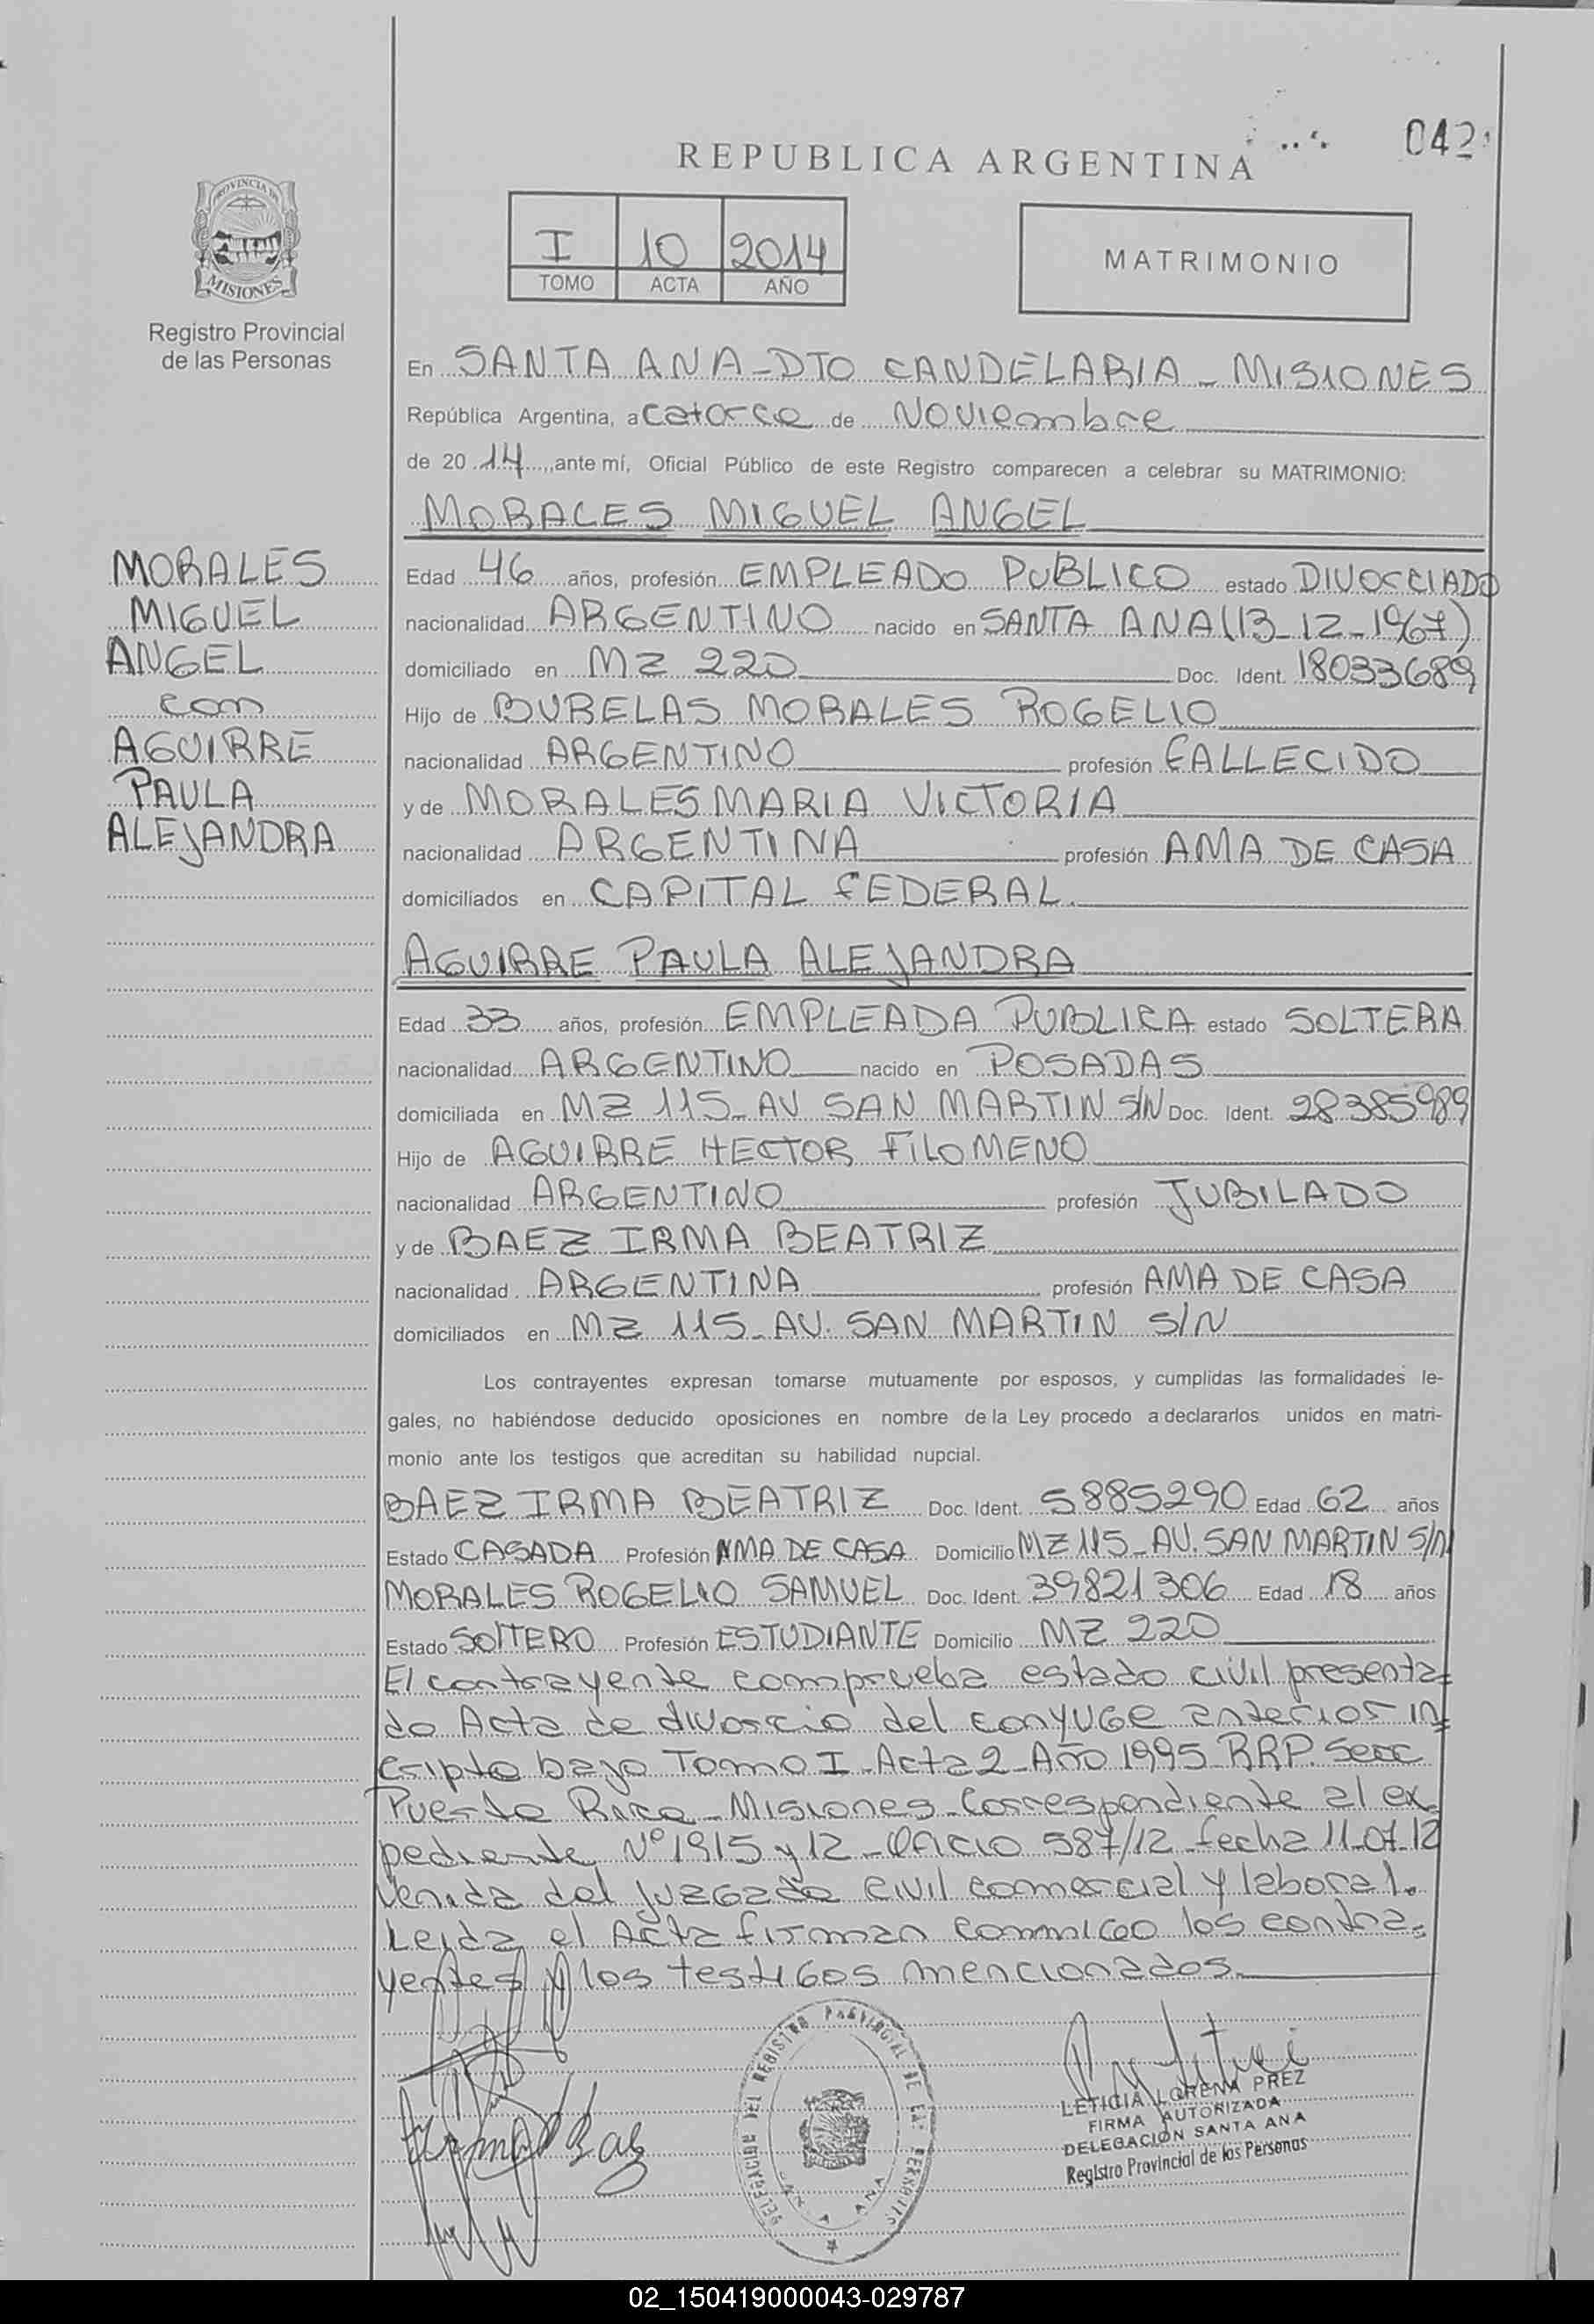 042
REPUBLICA ARGENTINA
PROVINCIA DE
MISIONES
Registro Provincial
de las Personas
I 10 2014
TOMO ACTA AÑO
MATRIMONIO
En SANTA ANA-DTO CANDELARIA - MISIONES
República Argentina, a catorce de Noviembre
de 20 14, ante mí, Oficial Público de este Registro comparecen a celebrar su MATRIMONIO:
MORALES MIGUEL ANGEL
MORALES
MIGUEL
ANGEL
con
AGUIRRE
PAULA
ALEJANDRA
Edad 46 años, profesión EMPLEADO PUBLICO estado DIVORCIADO
nacionalidad ARGENTINO nacido en SANTA ANA (13-12-1967)
domiciliado en MZ 220 Doc. Ident. 18033689
Hijo de BURELAS MORALES ROGELIO
nacionalidad ARGENTINO profesión FALLECIDO
y de MORALES MARIA VICTORIA
nacionalidad ARGENTINA profesión AMA DE CASA
domiciliados en CAPITAL FEDERAL.
AGUIRRE PAULA ALEJANDRA
Edad 33 años, profesión EMPLEADA PUBLICA estado SOLTERA
nacionalidad ARGENTINO nacido en POSADAS
domiciliada en MZ 115-AV SAN MARTIN S/N Doc. Ident. 28385989
Hijo de AGUIRRE HECTOR FILOMENO
nacionalidad ARGENTINO profesión JUBILADO
y de BAEZ IRMA BEATRIZ
nacionalidad ARGENTINA profesión AMA DE CASA
domiciliados en MZ 115-AV. SAN MARTIN S/N
Los contrayentes expresan tomarse mutuamente por esposos, y cumplidas las formalidades le-
gales, no habiéndose deducido oposiciones en nombre de la Ley procedo a declararlos unidos en matri-
monio ante los testigos que acreditan su habilidad nupcial.
BAEZ IRMA BEATRIZ Doc. Ident. 5885290 Edad 62 años
Estado CASADA Profesión AMA DE CASA Domicilio MZ 115-AV. SAN MARTIN S/N
MORALES ROGELIO SAMUEL Doc. Ident. 39821306 Edad 18 años
Estado SOLTERO Profesión ESTUDIANTE Domicilio MZ 220
El contrayente comprueba estado civil presenta=
do Acta de divorcio del conyuge anterior in=
cripto bajo Tomo I-Acta 2-Año 1995 RRP. Secc
Puerto Rico-Misiones-Correspondiente al ex-
pediente Nº 1915 y 12-Oficio 587/12-fecha 11-07-12
Venida del juzgado civil comercial y laboral.
Leida el Acta firman conmigo los contra=
yentes y los testigos mencionados
Irma Baez
DELEGACION DEL REGISTRO PROVINCIAL DE LAS PERSONAS
SANTA ANA
LETICIA LORENA PREZ
FIRMA AUTORIZADA
DELEGACIÓN SANTA ANA
Registro Provincial de las Personas
02_150419000043-029787